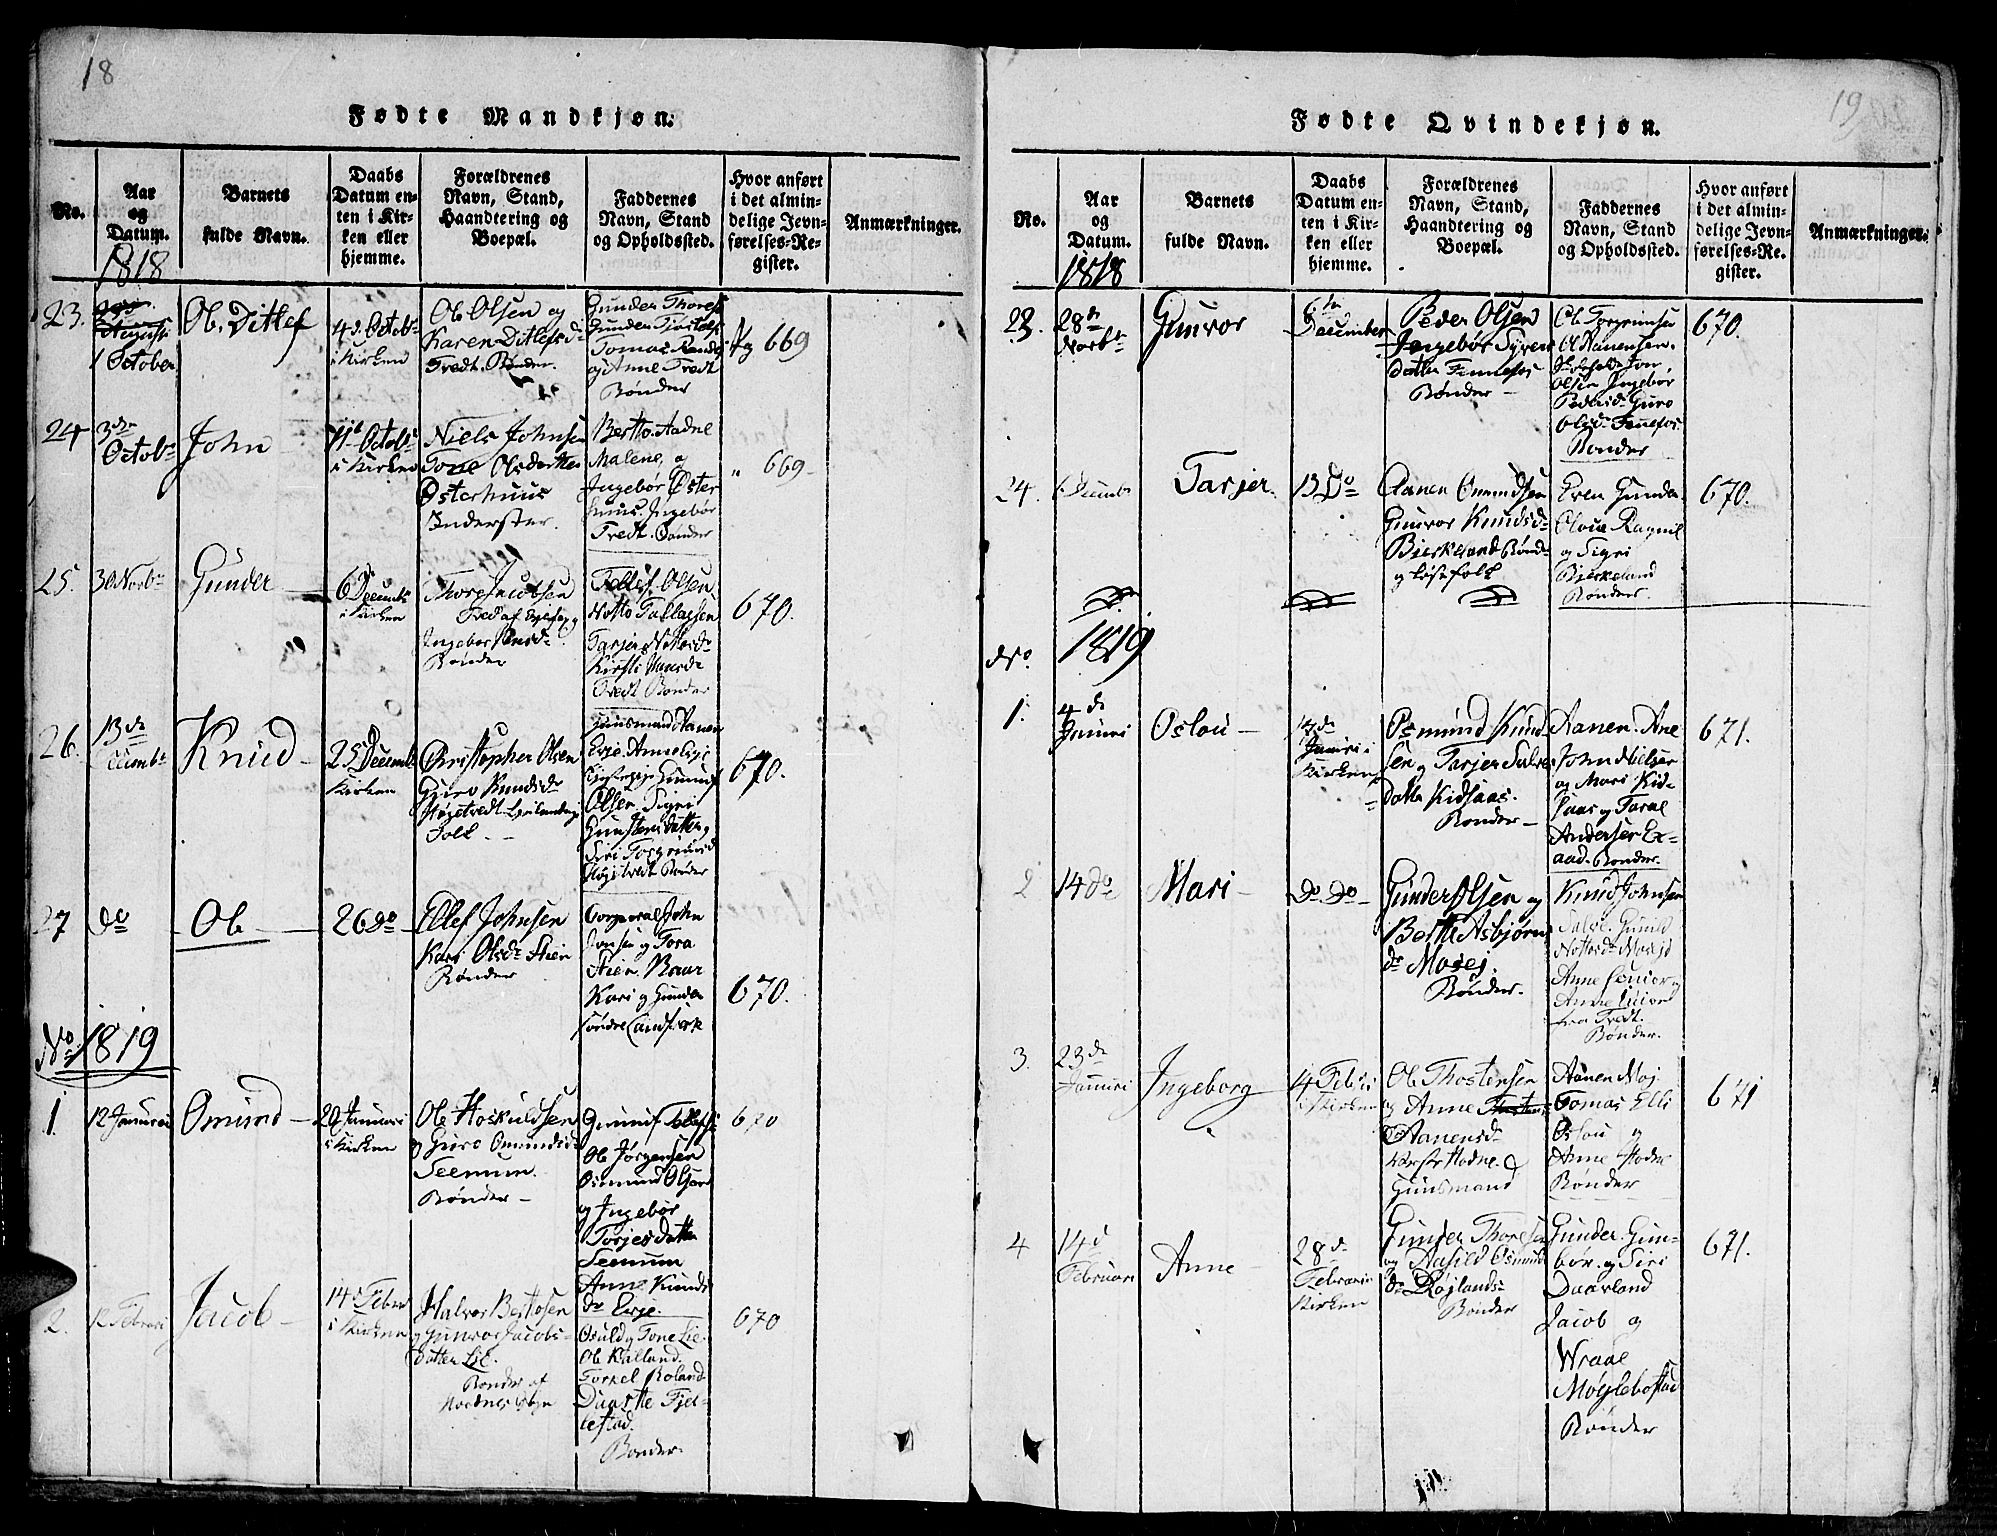 18
Fødte Mandkjøn.
No.
Aar
og
Datum.
1818
Barnets
fulde Navn.
Daabs
Datum en-
ten i Kir-
ken eller
hjemme.
Forældrenes
Navn, Stand,
Haandtering og
Boepæl.
Faddernes
Navn, Stand
og Opholdssted.
Hvor anført
i det almin-
delige Jevn-
førelses-Re-
gister.
Anmærkninger.
23.
1 October
Ole Ditlef
4d. Octobr
i Kirken
Ole Olsen og
Karen Ditlefsd
Tredt. Bønder.
Gunder Thores
Gunder
Tomas
og Anne Tredt
Bønder
Pag 669
24
3de
Octobr
John
11t Octobr
i Kirken
Niels Johnsen
Tone Olsdatter
Østerhuus
Inderster.
Berthe Aadne
Malene, og
Ingebor Øster
huus. Ingebor
Tredt. Bønder
" 669-
25.
30 Novbr
Gunder
6 Decembr
i Kirken
Thore Jacobsen
Ingebor
Bønder
Tellef Olsen
Notto Tallagsen
Tarjer Nottosdr
Kirsti
Tredt Bønder
670.
26.
13de
Decembr
Knud -
25 Decembr
Kirken
Christopher Olsen
Guro Knudsdr
Høgetvedt
Folk
Huusmand Aanen
Evje. Anne Evje
Gunuf
Olsen, Sigri
Gunstensdatter og
Siri Torgrimsd
Høgetvedt Bønder
670.
27
do
Ole
26 do
Ellef Johnsen
Kari Olsdr Stien
Bønder
Corporal John
Jonsen og Tora
Stien. Roar
Kari og Gunder
søndre
670.
No. 1819
1.
12 Januari
Omund
Januari
i Kirken
Ole Hoskuldsen
og Guro Omundsd
Seenum.
Bønder -
Gunuf Tellefs
Ole Jørgensen
Osmund
og Ingebor
Torjesdatter
Seenum
Anne Knuds
dr Evje.
670
2.
12 Februari
Jacob -
14 d Febru
i Kirken
Halvor Bertosen
og Gunvor Jacobs-
datter Lie.
Bønder af
Osuld og Tone Lie.
Ole Kalland.
Torkel Roland
Daarthe Fjel-
lestad.
Bønder.
670
19
Fødte Qvindekjøn.
No.
Aar
og
Datum.
1818
Barnets
fulde Navn.
Daabs
Datum en-
ten i Kir-
ken eller
hjemme.
Forældrenes
Navn, Stand,
Haandtering og
Boepæl.
Faddernes
Navn, Stand
og Opholdssted.
Hvor anført
i det almin-
delige Jevn-
førelses-Re-
gister.
Anmærkninger.
23.
28de
Novbr
Gunvor
6te
December
Peder Olsen
Ingebor Syvers
datter Fennefos
Bønder -
Ole Torgrimsen
Ol Aanensen.
Jon
Olsen Ingebor
Pedersdr Guro
Olsdr Fennefos
Bønder
670.
24.
Decembr
Tarjer
13 Do
Aanen Omundsen
Gunvor Knudsdr
Bierkeland Bønd-
og løsefolk
Even Gunder
Olsen Ragnil
og Sigri
Bierkeland
Bønder.
670.
No.
1819
1.
4 de
Januri
Oslou -
Januri i
Kirken
Osmund Knud
sen og Tarjer Salves
datter Kidsaas.
Bønder -
Aanen. Ane
John Nielsen
og Mari Kid-
saas og Taral
Andersen Ex-
aad. Bønder.
671.
2
14 do
Mari -
Do Do -
Gunder Olsen og
Berthe Asbjørns
dr Mosej.
Bønder.
Knud Johnsen
Salve. Gunild
Nottosdr Mosejd
Anne senior og
Anne junior
fra Tredt.
Bønder.
3.
23 de
Januri
Ingeborg
14 Febri
i Kirken
Ole Thostensen
og Anne
Aanensdr
Hodne.
Huusmand
Aanen Moj
Tomas Elli
Oslou og
Anne Hodne
Bønder
671
4
14 d
Februari
Anne -
28 de
Februari i
Kirken
Gunder Thoresen
og Aasild Osmunds
dr Røjland-
Bønder
Gunder. Gun-
bør. og Siri
Daarland
Jacob og
Wraal
Møglebostad
Bønder
671.